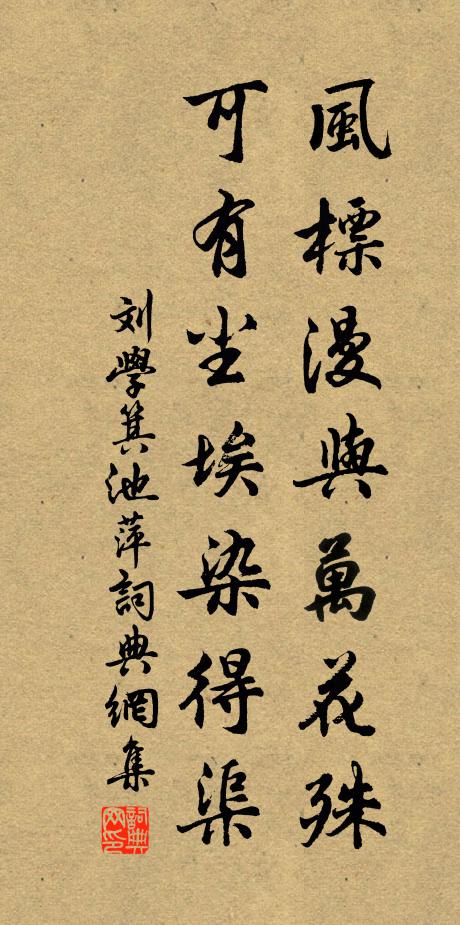 風標漫與萬花殊
可有尘埃染得渠
刘學箕池萍詞典網集
詞典网印